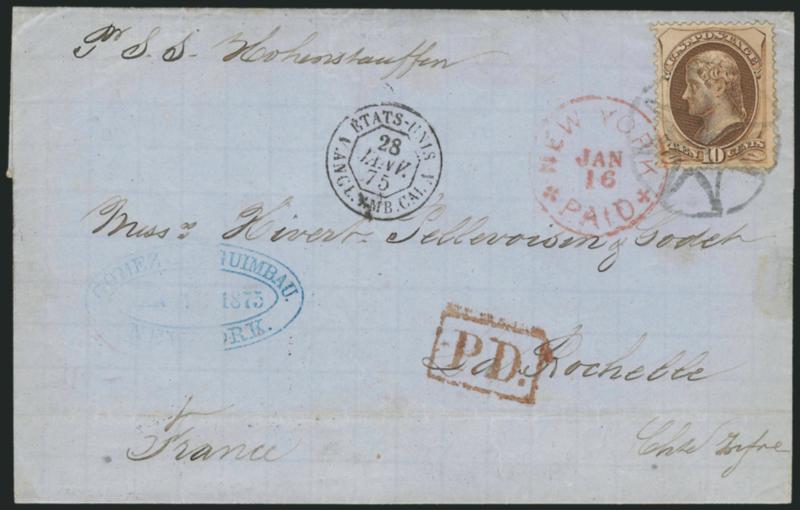 Pr S. S. Hohenstauffen
U.S. POSTAGE
TEN 10 CENTS
ÉTATS-UNIS
28
JANV.
75
V. ANGL. AMB. CAL. A
NEW YORK
JAN
16
PAID
Mess rs Hivert Pellevoisin y Godet
GOMEZ GUIMBAU.
1875
NEW YORK.
P.D.
La Rochelle
France
Chte Infre